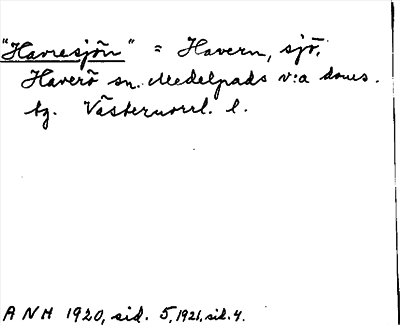 "Havresjön" = Havern, sjö,
Haverö sn. Medelpads v:a doms.
tg. Västernorrl. l.
A N H 1920, sid. 5, 1921, sid. 4.